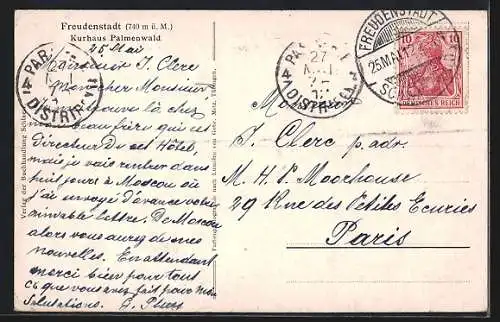 Freudenstadt (740 m ü. M.)
Kurhaus Palmenwald
25 Mai
Monsieur J. Clerc
Mon cher Monsieur
me trouve là chez
mon beau frère qui est
Directeur de cet Hôtel,
mais je vais rentrer dans
huit jours à Moscou où
j'ai envoyé d'avance votre
aimable lettre. De Moscou
alors vous aurez de mes
nouvelles. En attendant
merci bien pour tout
ce que vous avez fait pour
Salutations.
Verlag der Buchhandlung
PARIS
DISTRIB
PARIS
27
DISTRIB
FREUDENSTADT
25 MAI 12
10 10
DEUTSCHES REICH
Monsieur
J. Clerc p. adr.
M. H. P. Moorhouse
29 Rue des Petites Ecuries
Paris